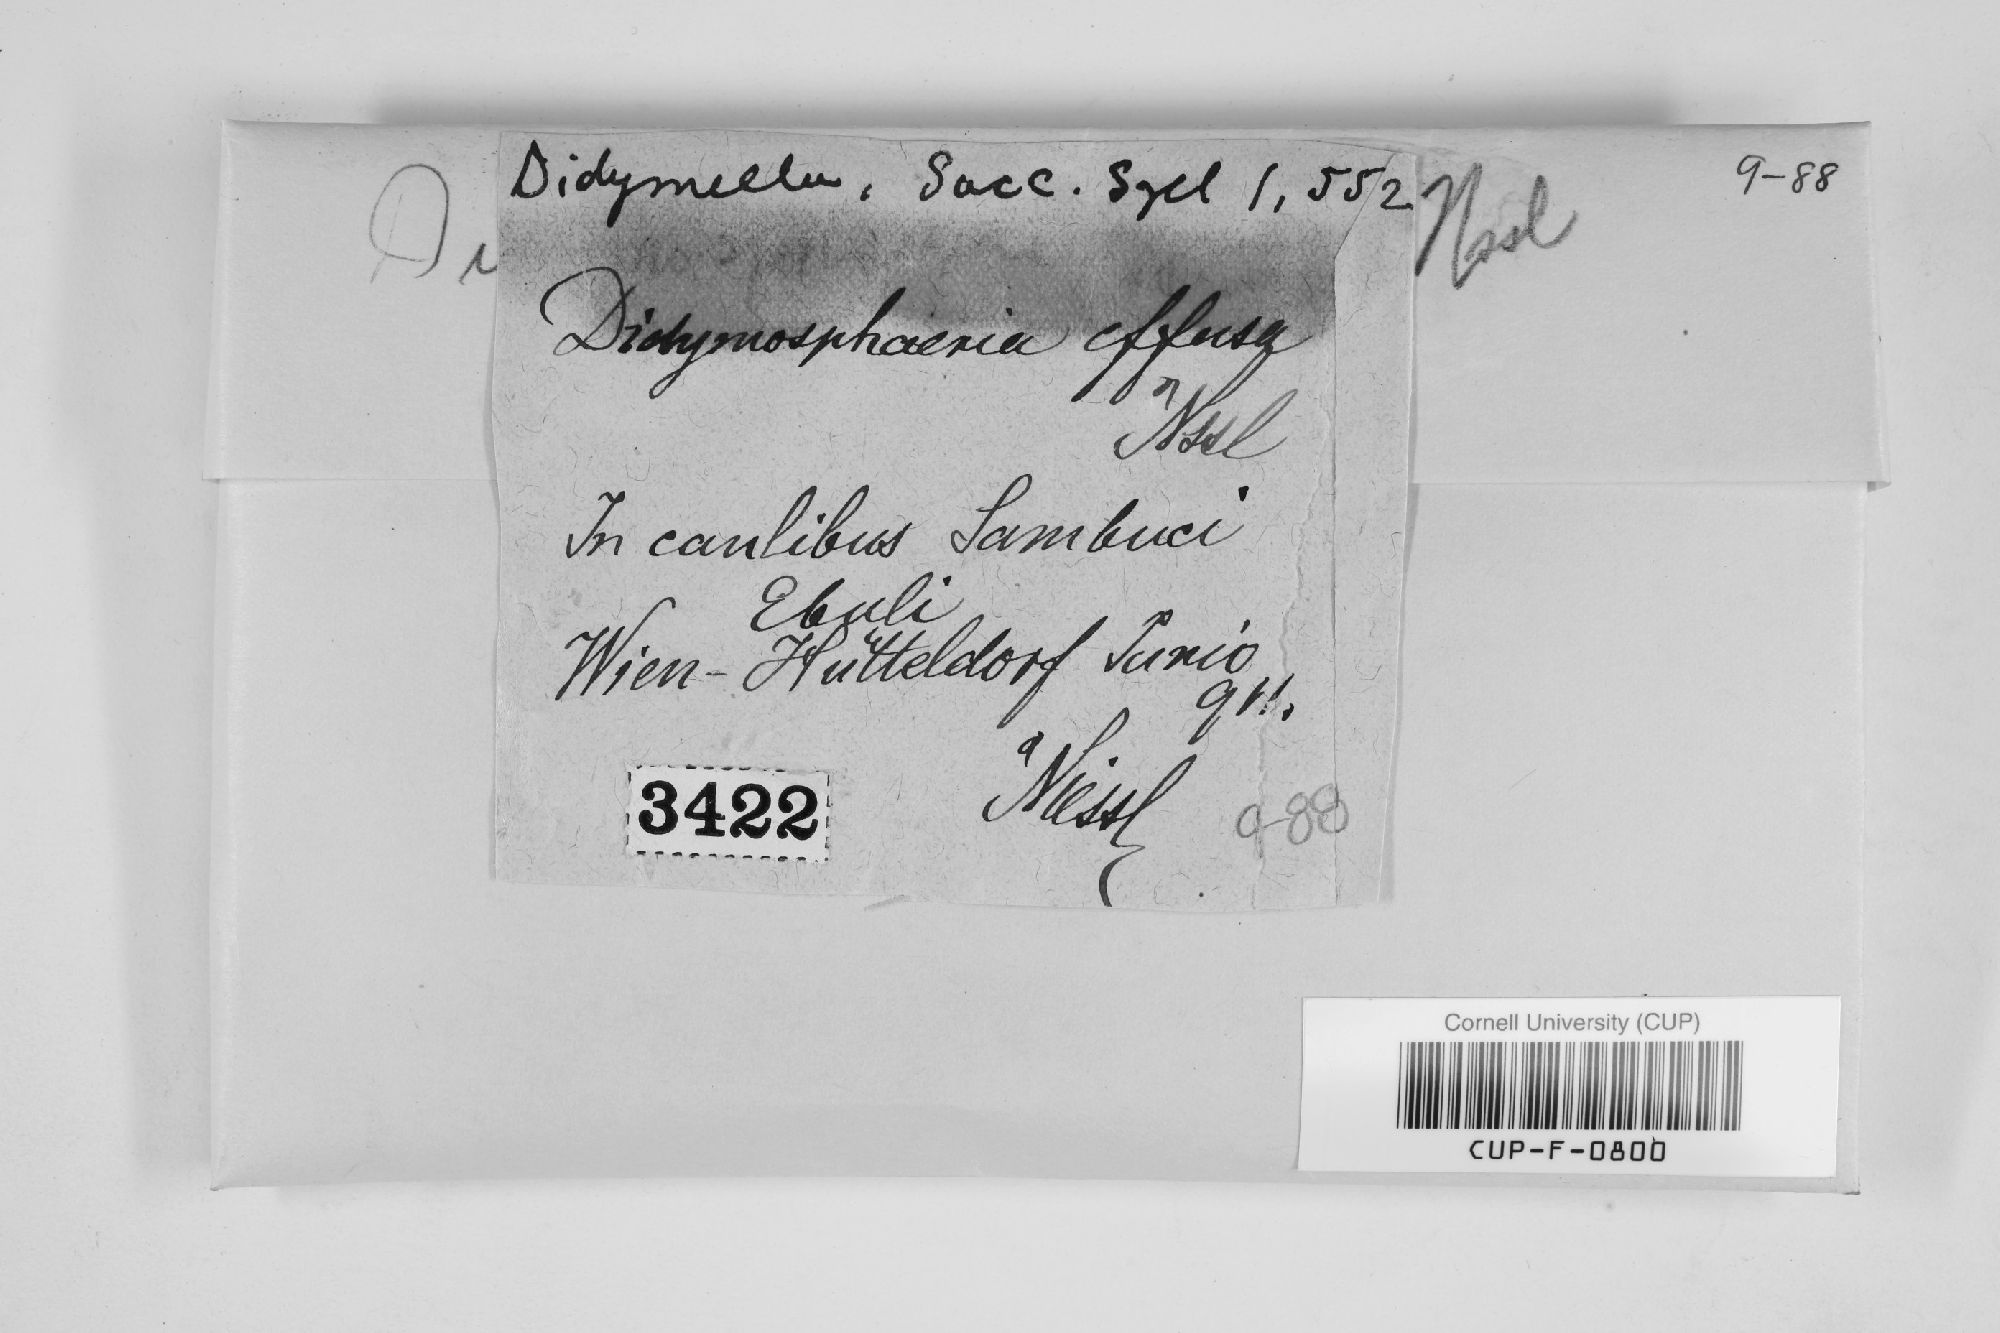 Didymella, Sacc. Syll 1, 552
9-88
Di
Nssl
Didymosphaeria effusa
Nssl
In caulibus Sambuci
Ebuli
Wien-Hütteldorf Junio
911.
Niessl
3422
9-88
Cornell University (CUP)
CUP-F-0800